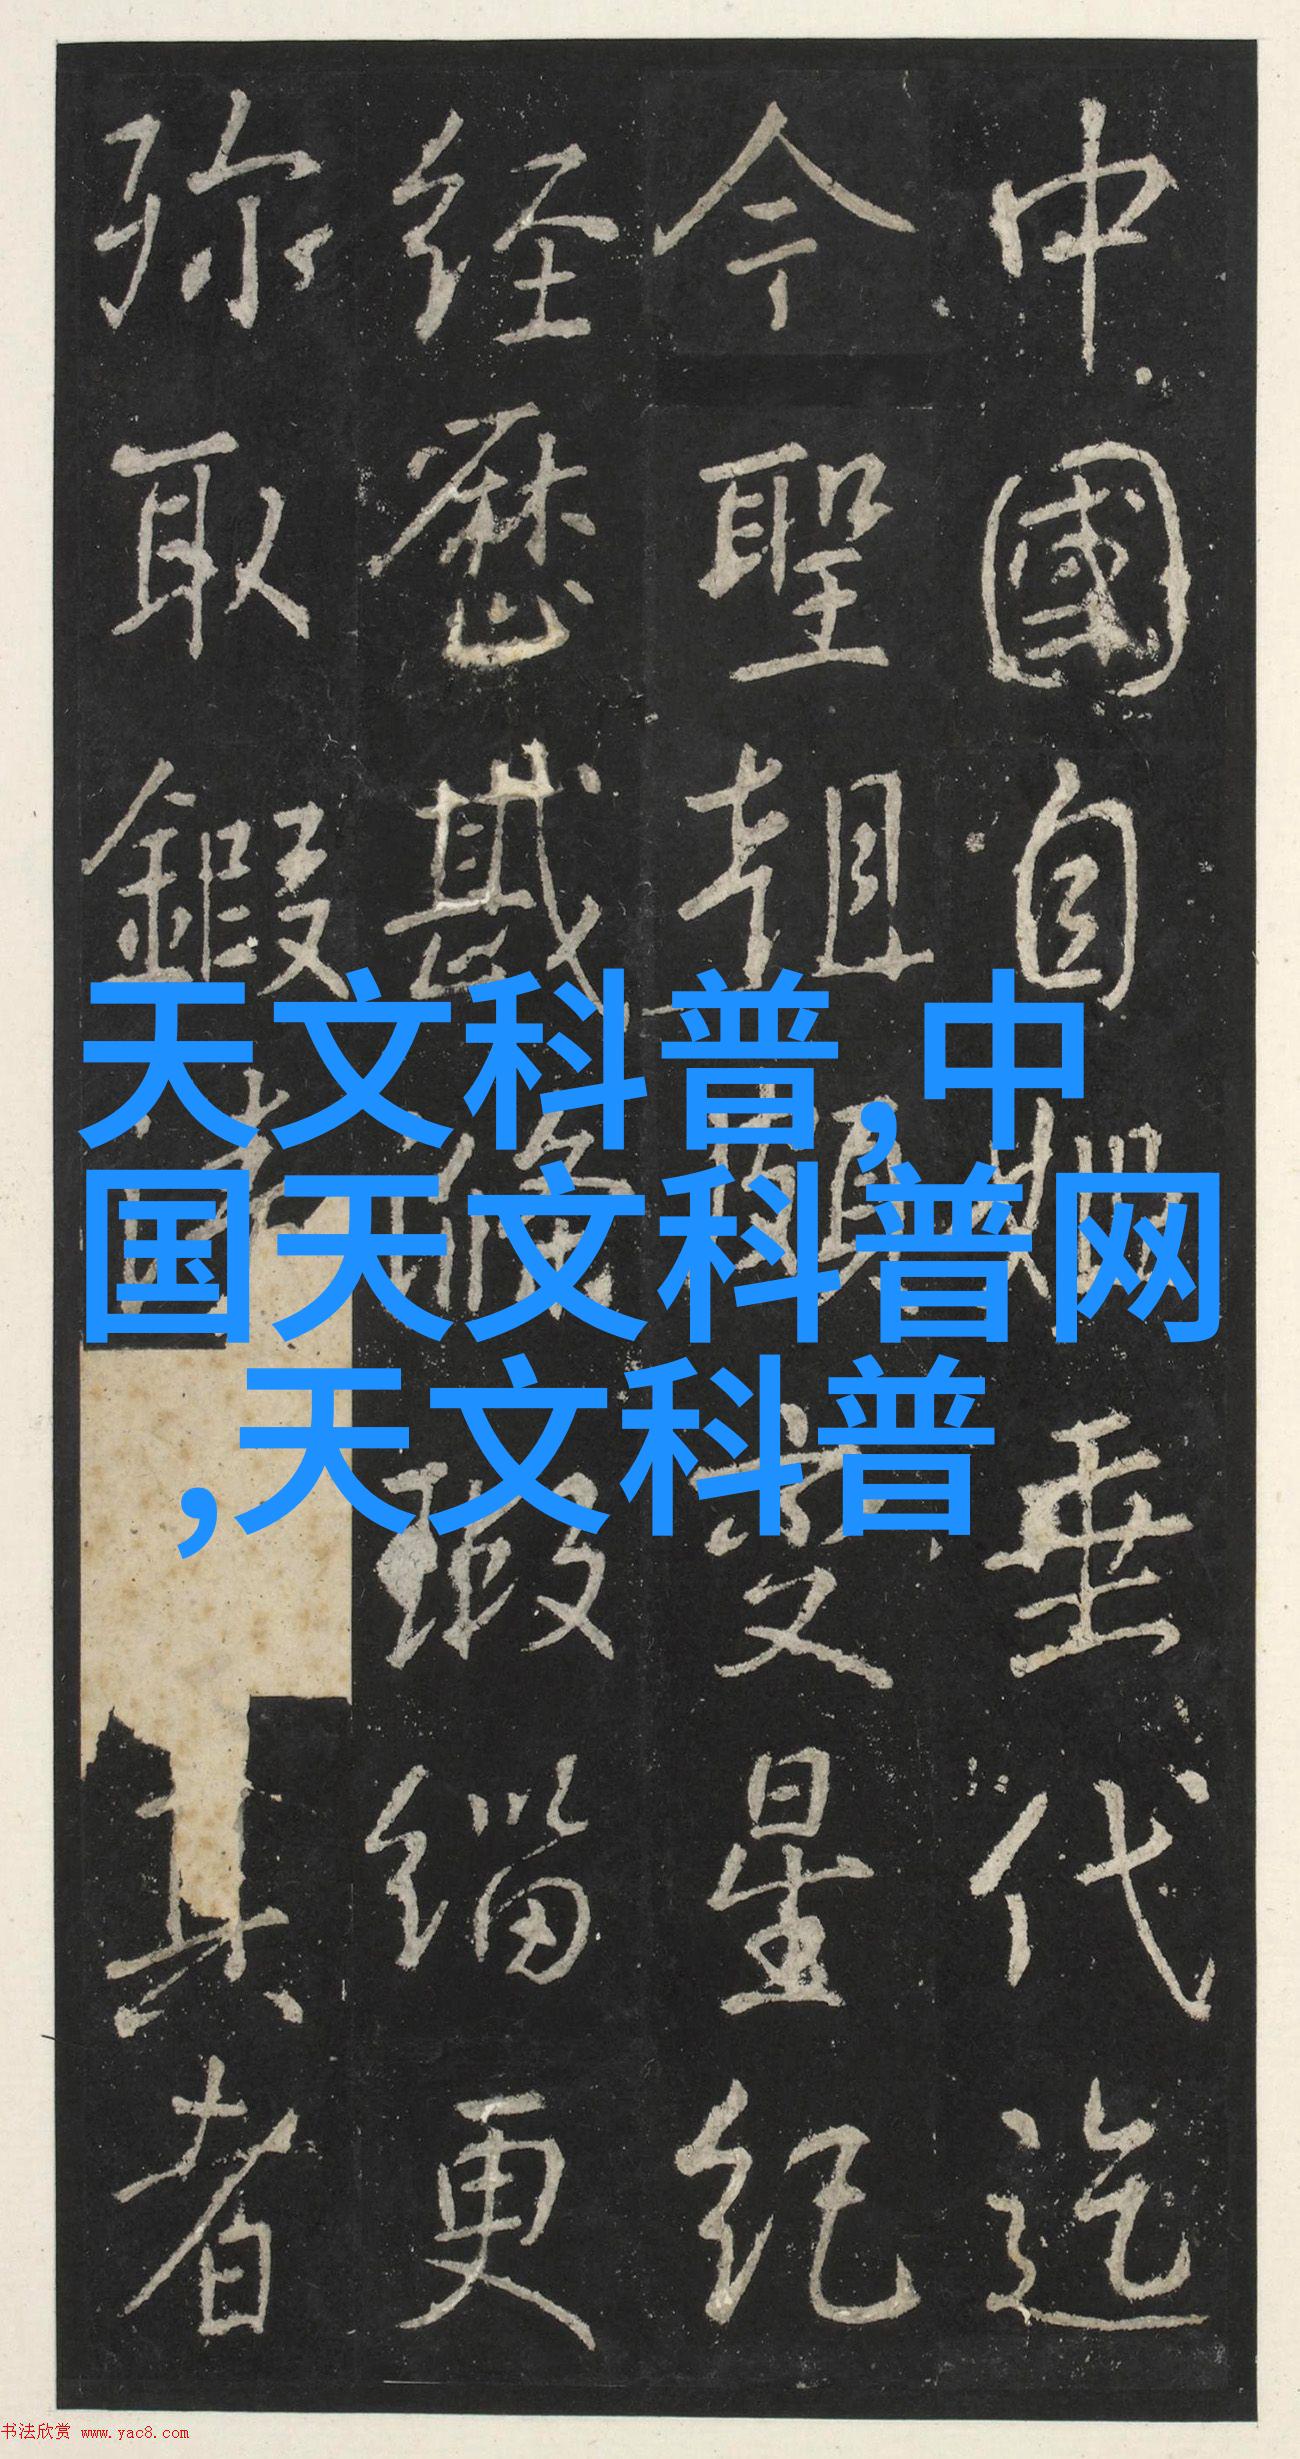 中國自垂代迄
今聖朝受星紀
经歷戡滌瑕緇更
弥取鍜真者
天文科普,中
国天文科普网
,天文科普
书法欣赏 www.yac8.com